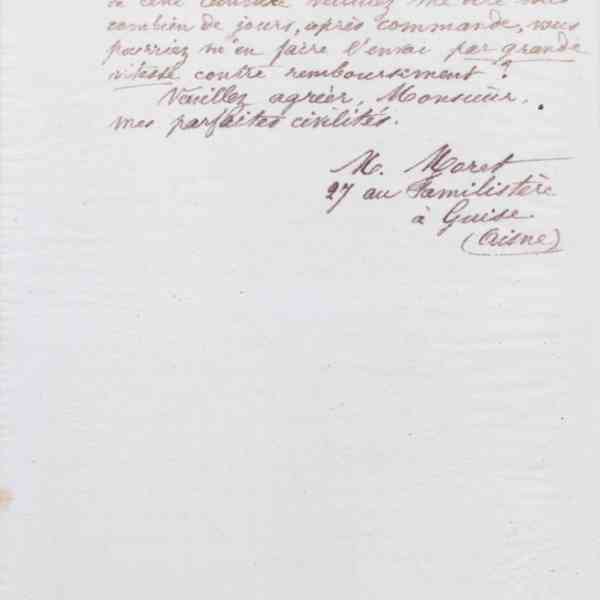 à cette veuillez me dire
combien de jours, après commande, vous
pourriez m'en faire l'envoi par grande
vitesse contre remboursement ?
Veuillez agréer, Monsieur,
mes parfaites civilités.
M. Moret
27 au Familistère
à Guise.
(Aisne)